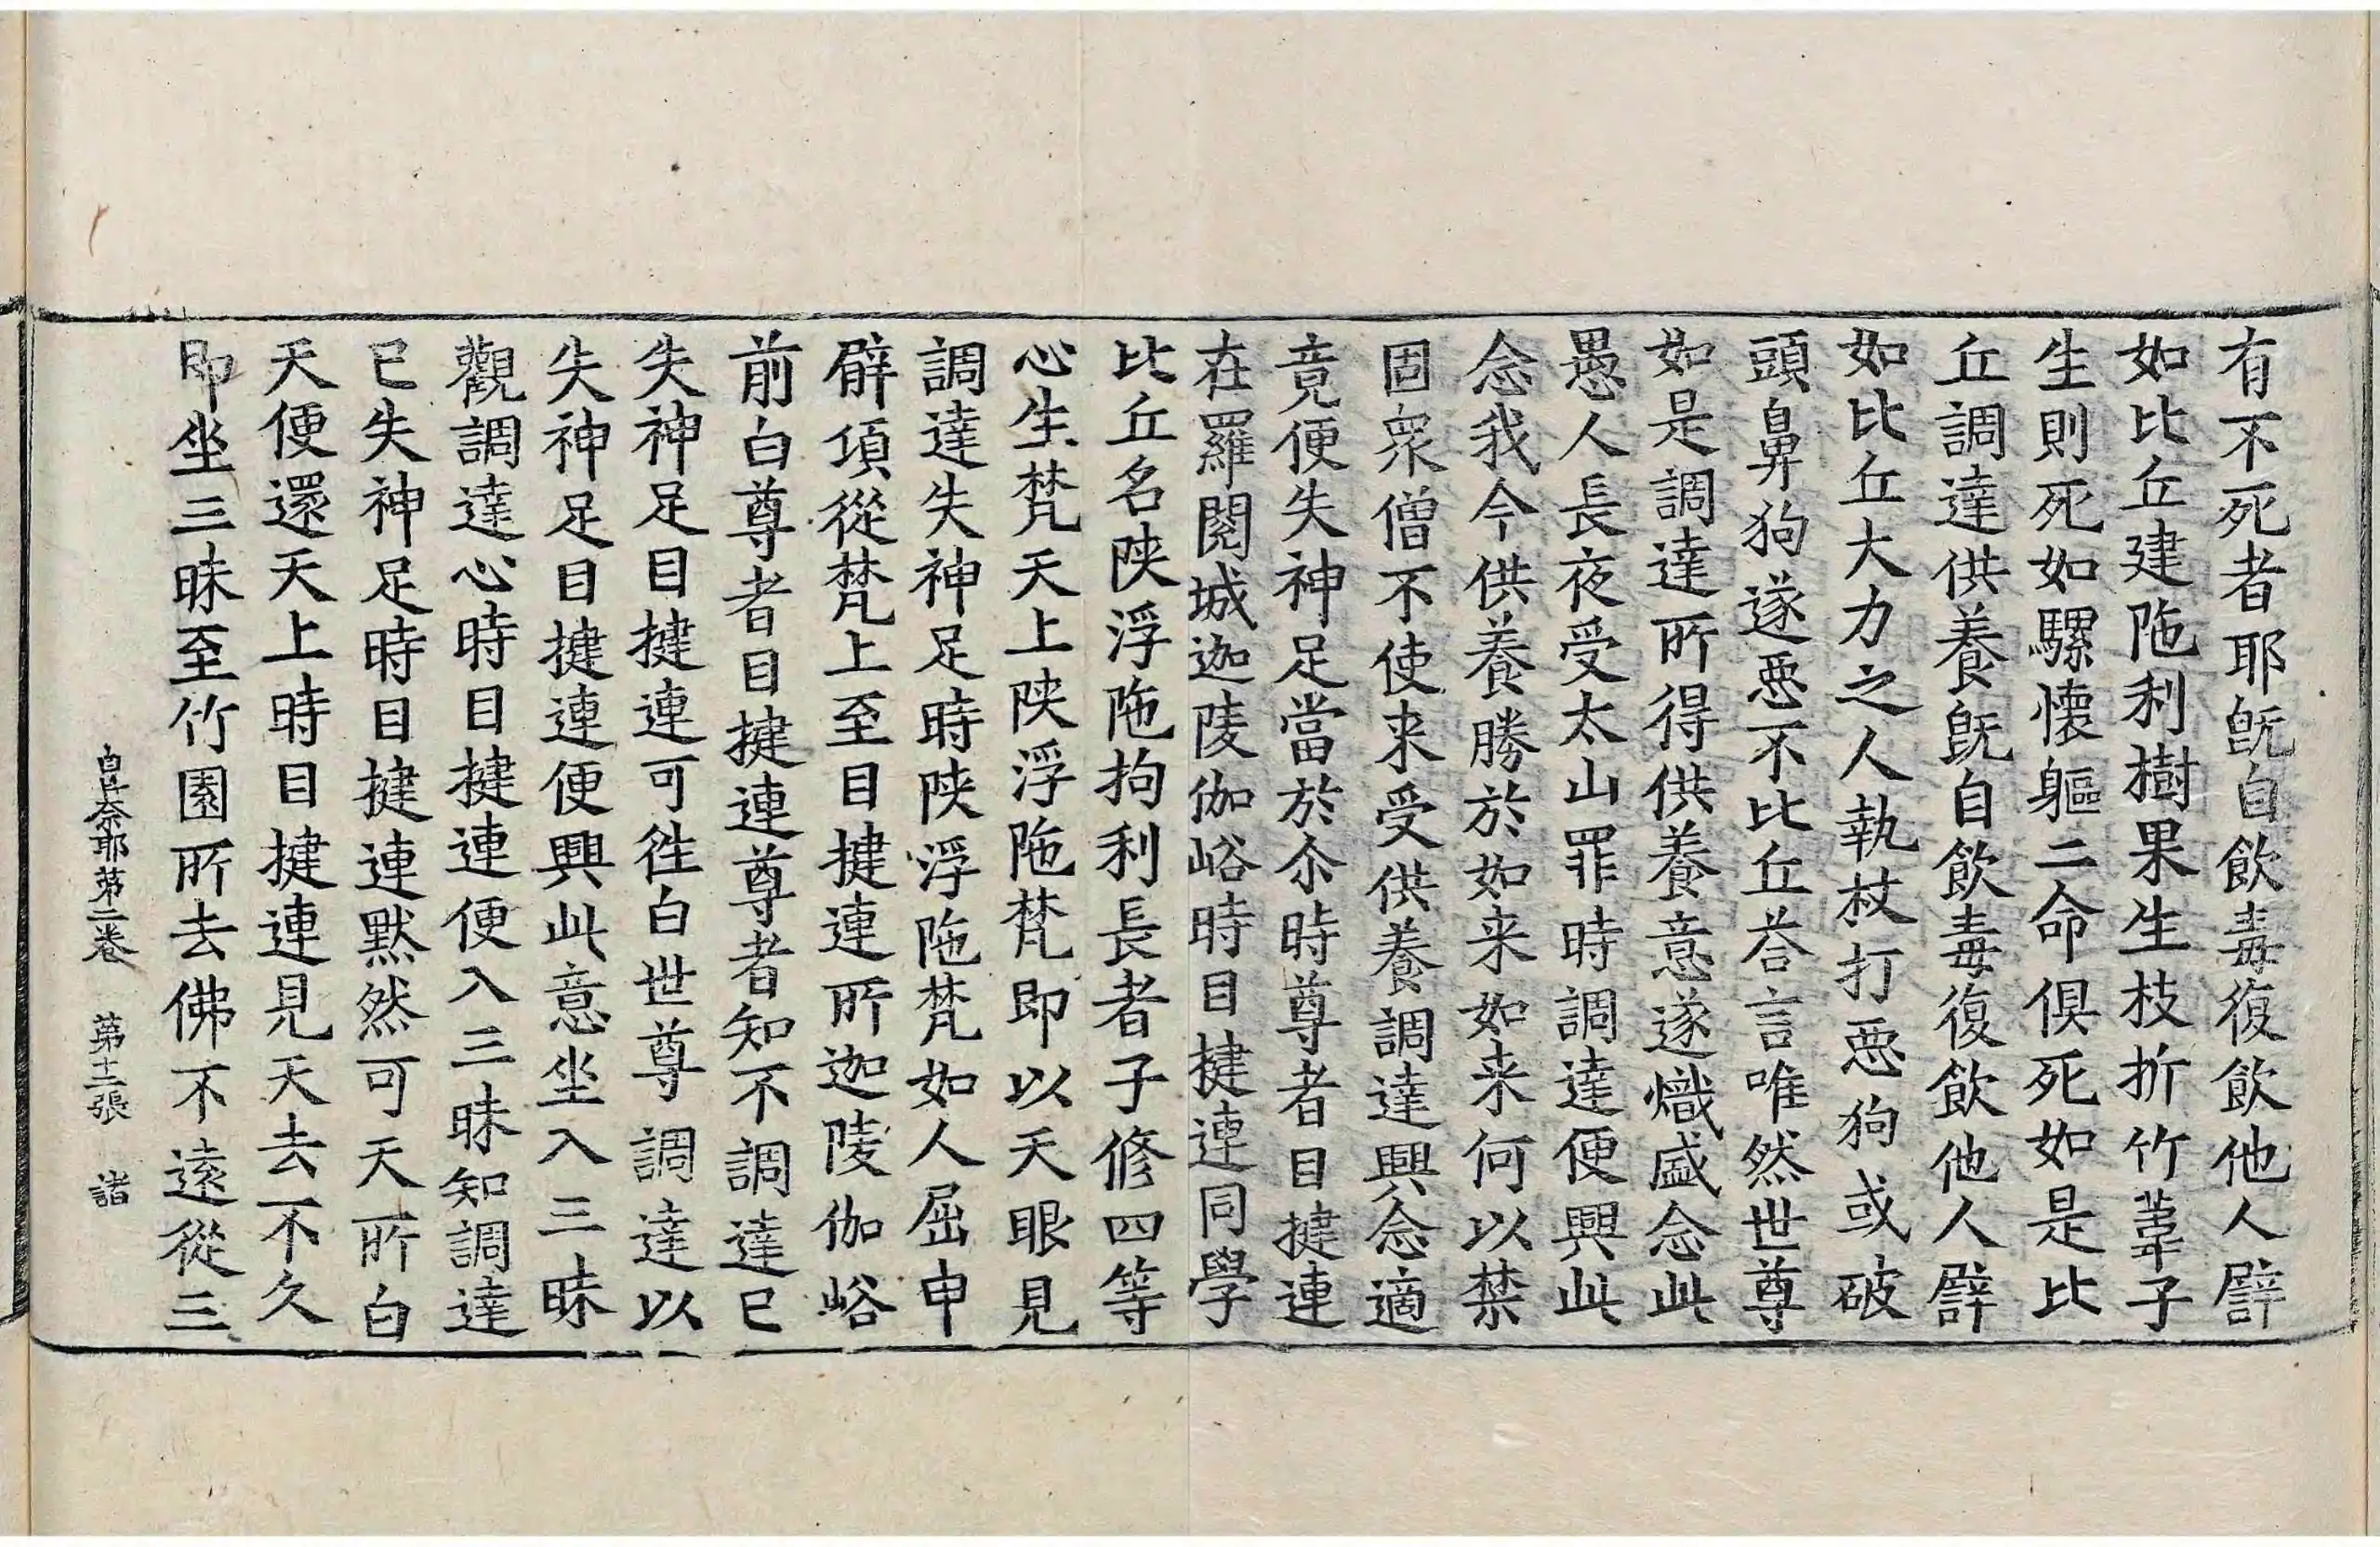 有不死者耶旣自飲毒復飲他人譬
如比丘建陁利樹果生枝折竹葦子
生則死如騾懷軀二命俱死如是比
丘調達供養旣自飲毒復飲他人譬
如比丘大力之人執杖打悪狗或破
頭鼻狗遂悪不比丘荅言唯然世尊
如是調達所得供養意遂熾盛念此
愚人長夜受太山罪時調達便興此
念我今供養勝於如来如来何以禁
固衆僧不使来受供養調達興念適
竟便失神足當於尒時尊者目揵連
在羅閱城迦陵伽峪時目揵連同學
比丘名陜浮陁拘利長者子修四等
心生梵天上陜浮陁梵即以天眼見
調達失神足時陜浮陁梵如人屈申
臂項從梵上至目揵連所迦陵伽峪
前白尊者目揵連尊者知不調達已
失神足目揵連可徃白世尊調達以
失神足目揵連便興此意坐入三昧
觀調達心時目揵連便入三昧知調達
已失神足時目揵連默然可天所白
天便還天上時目揵連見天去不久
即坐三昧至竹園所去佛不遠從三
奈耶第二卷 第十二張 諸